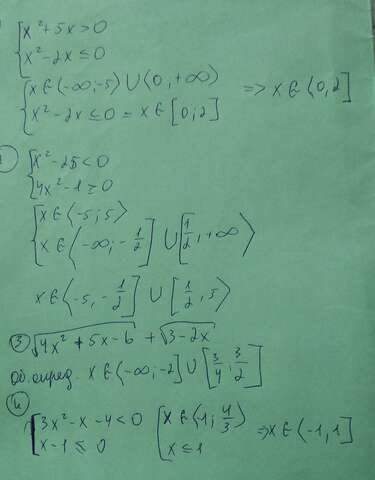 {x²+5x>0
x²-2x≤0
{x∈(-∞,-5)∪(0,+∞)
x²-2x≤0 = x∈[0;2] => x∈(0,2]
{x²-25<0
4x²-1≥0
{x∈(-5;5)
x∈(-∞;-1/2]∪[1/2,+∞)
x∈(-5,-1/2]∪[1/2,5)
③ √4x²+5x-6 + √3-2x
Об. опред. x∈(-∞;-2]∪[3/4;3/2]
④
{3x²-x-4<0 {x∈(-1;4/3)
x-1≤0 x≤1 => x∈(-1,1]